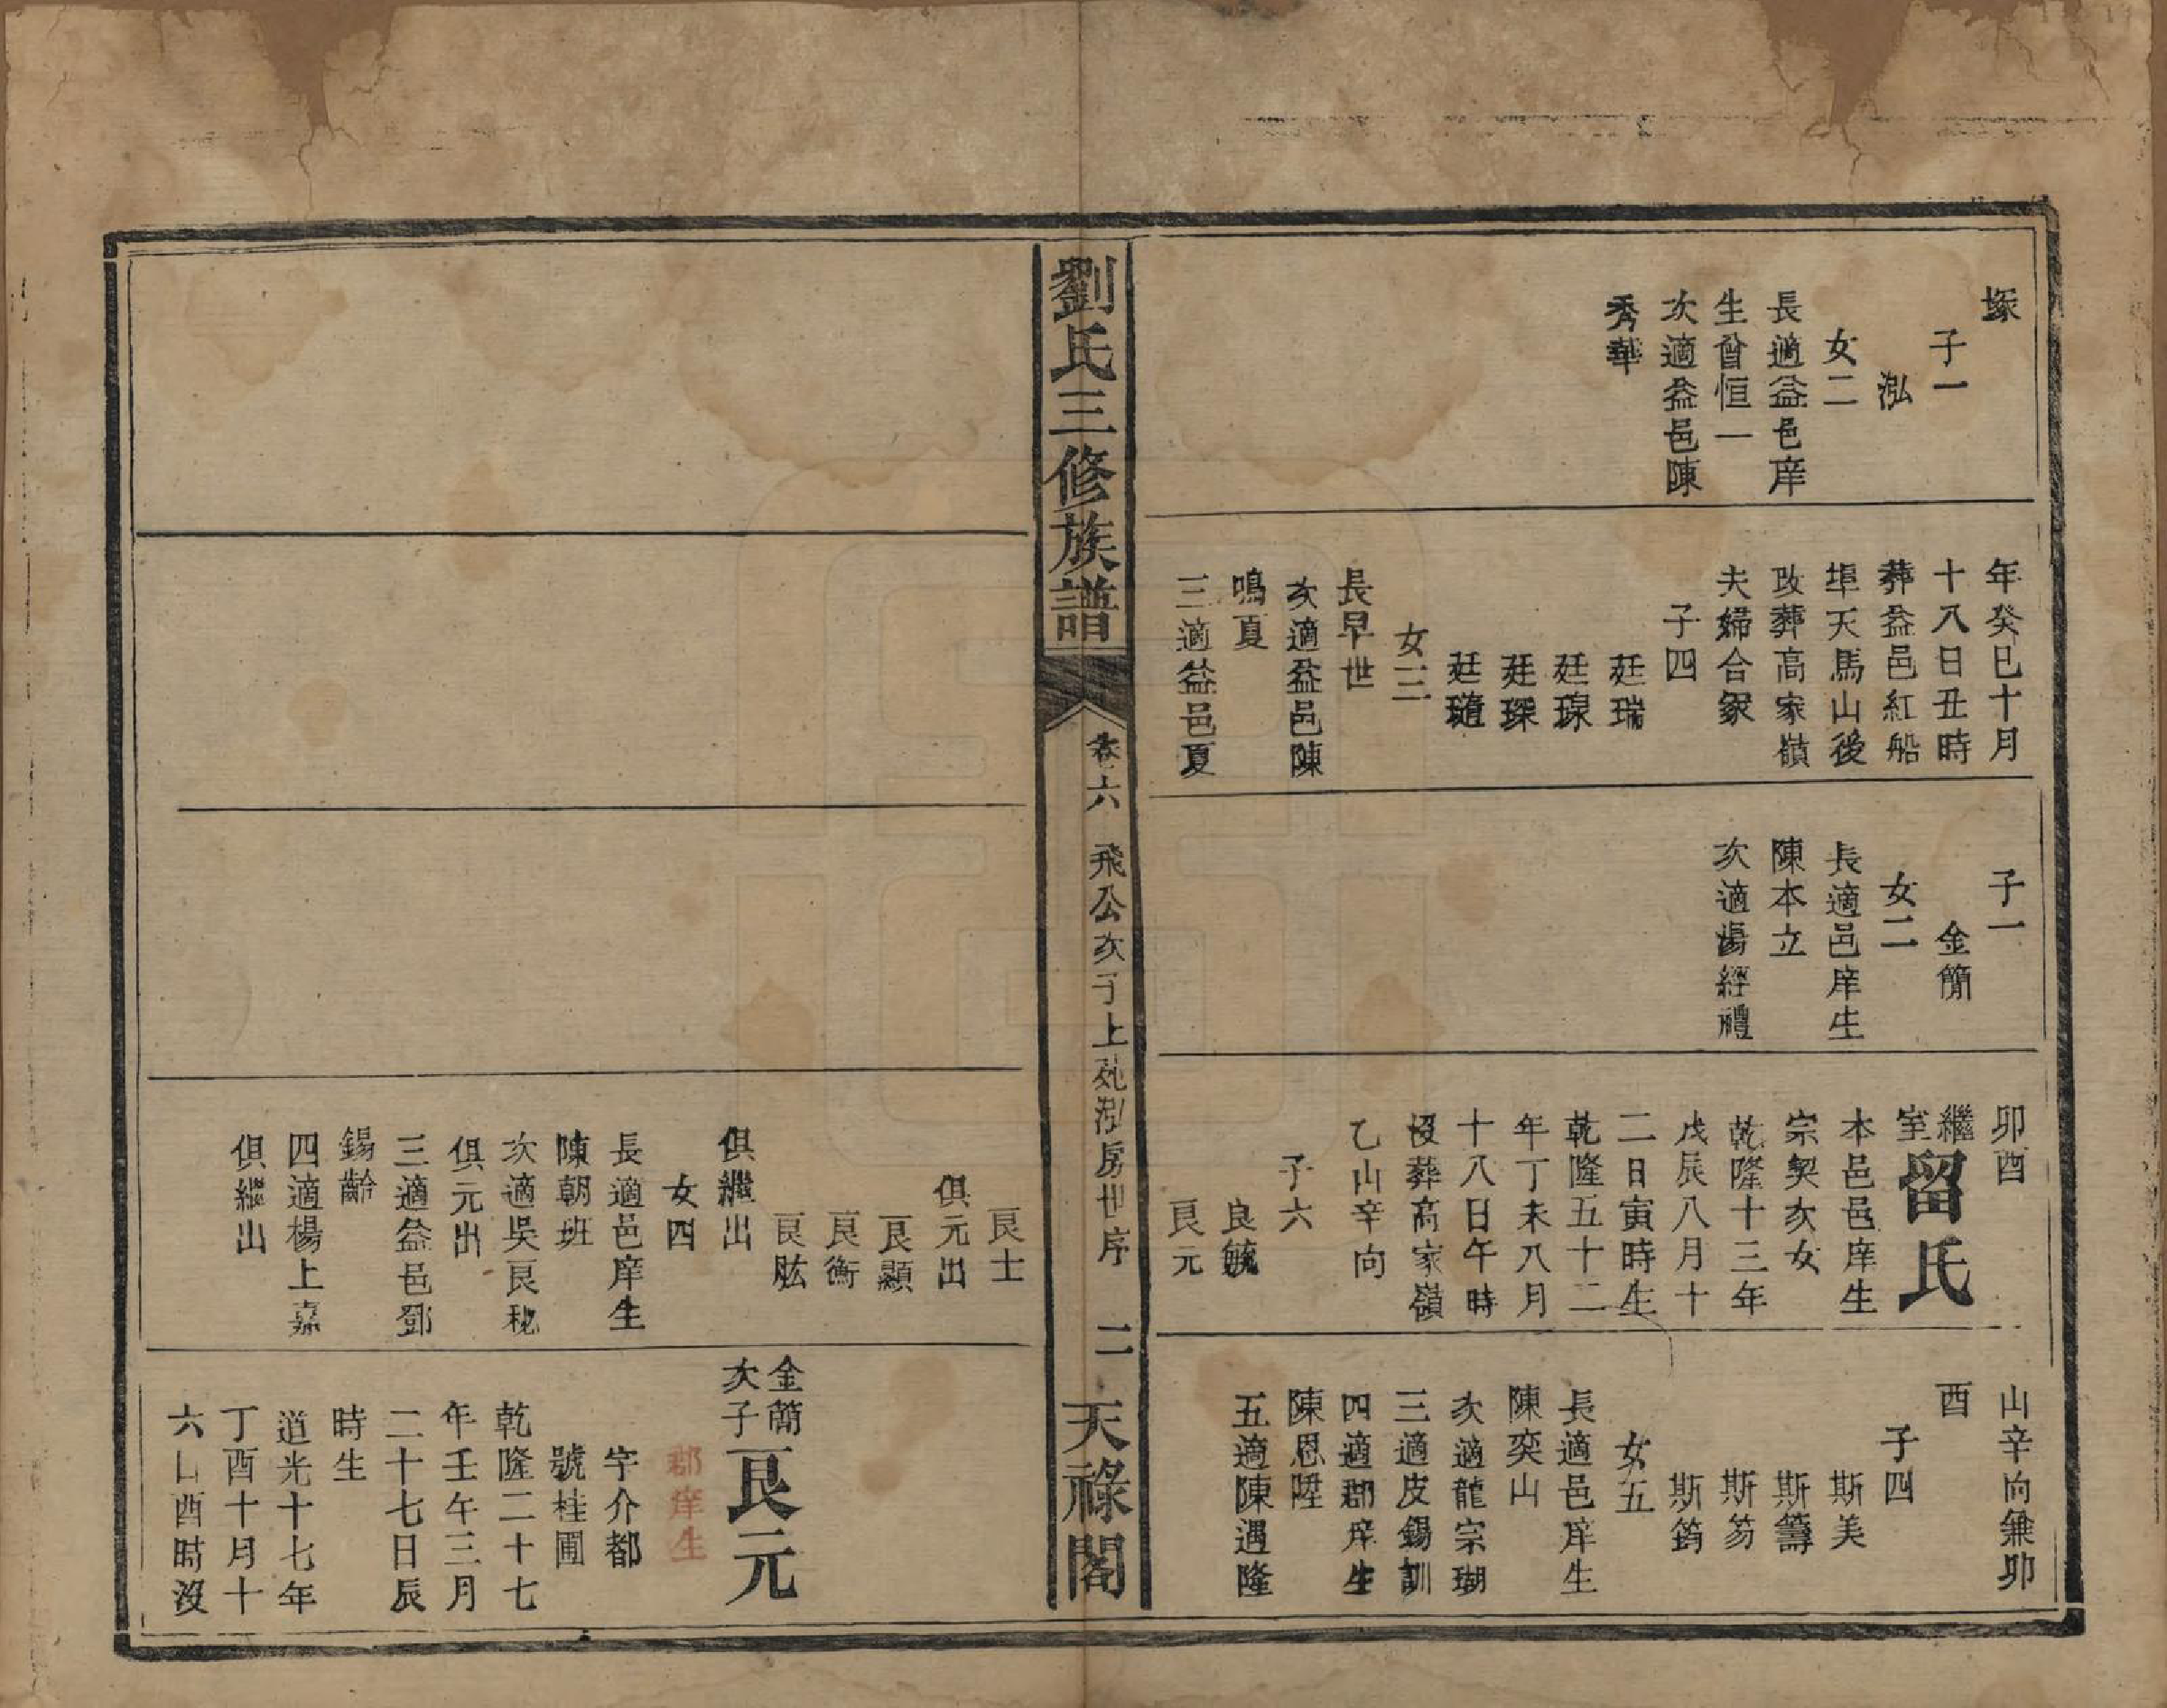 塜
子一
泓
女二
長適益邑庠
生曾恒一
次適益邑陳
秀華
年癸巳十月
十八日丑時
葬益邑紅船
埠天馬山後
改葬高家嶺
夫婦合冢
子四
廷瑞
廷琼
廷琛
廷璲
女三
長早世
次適益邑陳
鳴夏
三適益邑夏
子一
金簡
女二
長適邑庠生
陳本立
次適楊經禮
卯酉
繼室留氏
本邑邑庠生
宗契次女
乾隆十三年
戊辰八月十
二日寅時生
乾隆五十二
年丁未八月
十八日午時
歿葬高家嶺
乙山辛向
子六
良毓
良元
山辛向兼卯
酉
子四
斯美
斯籌
斯笏
斯筠
女五
長適邑庠生
陳奕山
次適龍宗瑚
三適皮錫訓
四適郡庠生
陳恩陞
五適陳遇隆
劉氏三修族譜
卷六
飛公次子上苑泓房世序
二
天祿閣
良士
俱元出
良顯
良衡
良肱
俱繼出
女四
長適邑庠生
陳朝班
次適吳良秘
俱元出
三適益邑鄧
錫齡
四適楊上嘉
俱繼出
金簡次子良元
郡庠生
字介都
號桂圃
乾隆二十七
年壬午三月
二十七日辰
時生
道光十七年
丁酉十月十
六日酉時沒